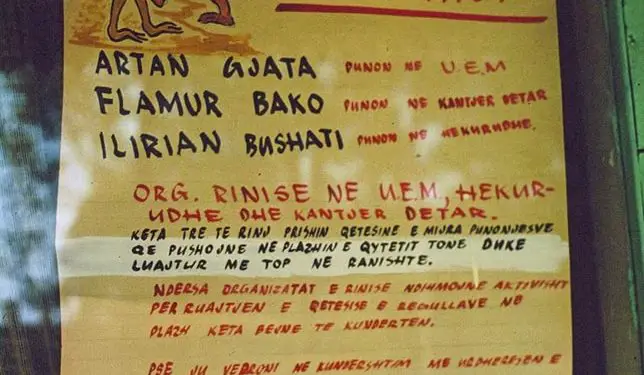 ARTAN GJATA PUNON NE U.E.M
FLAMUR BAKO PUNON NE KANTJER DETAR
ILIRIAN BUSHATI PUNON NE HEKURUDHE.
ORG. RINISE NE U.E.M, HEKUR-
UDHE DHE KANTJER DETAR.
KETA TRE TE RINJ PRISHIN QETESINE E MIJRA PUNONJESVE
QE PUSHOJNE NE PLAZHIN E QYTETIT TONE DUKE
LUAJTUR ME TOP NE RANISHTE.
NDERSA ORGANIZATAT E RINISE NDIHMOJNE AKTIVISHT
PER RUAJTJEN E QETESISE E RREGULLAVE NE
PLAZH KETA BEJNE TE KUNDERTEN.
PSE JU VEPRONI NE KUNDERSHTIM ME URDHERESEN E